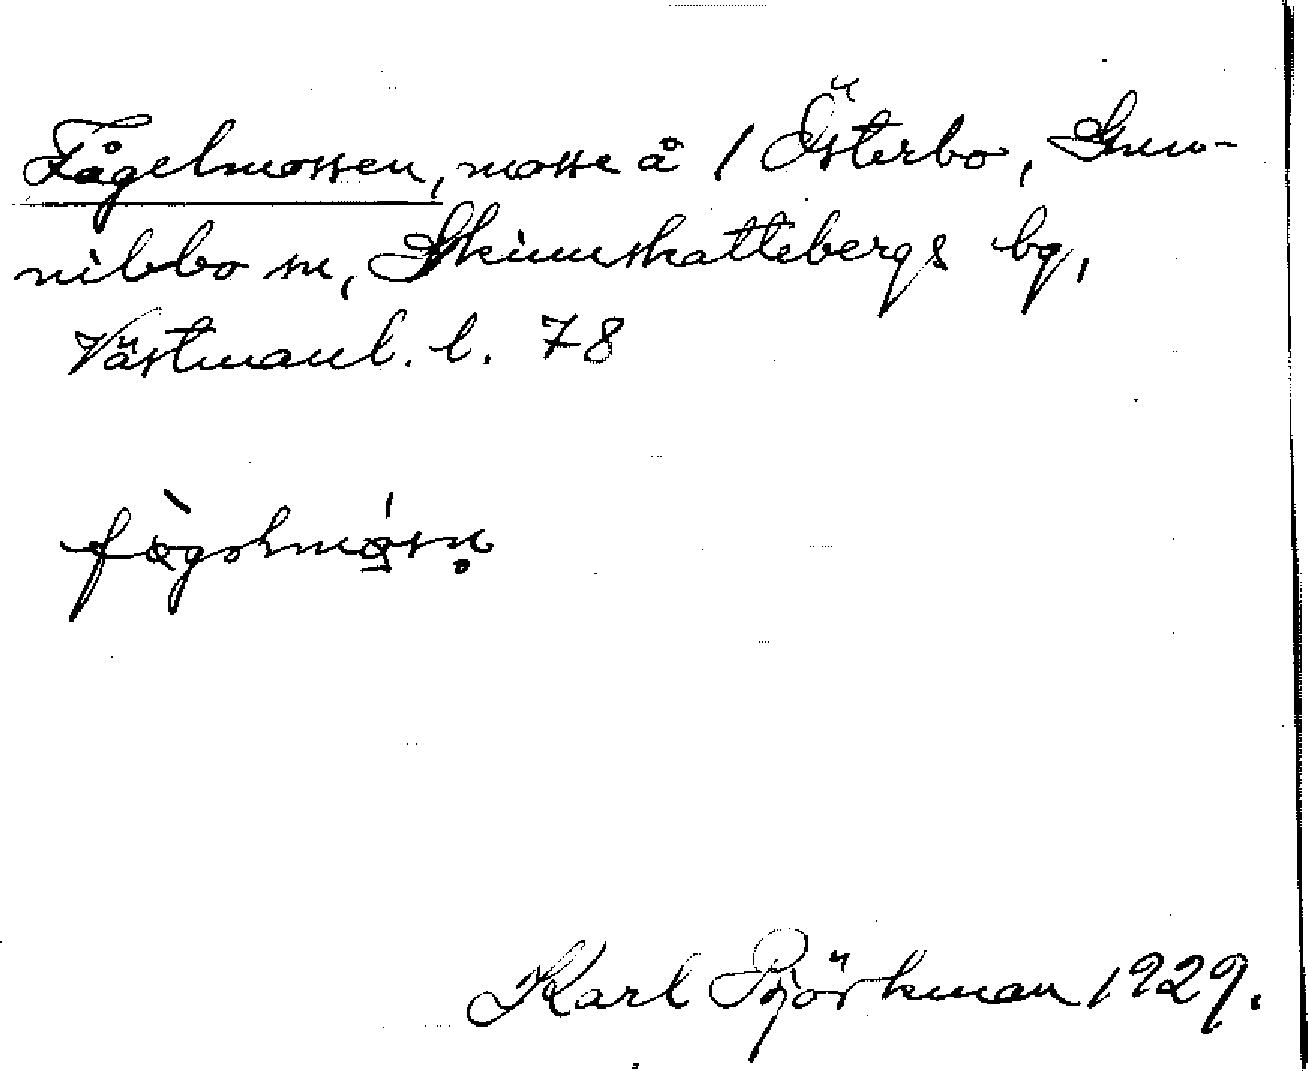 Fågelmossen, mosse å 1 Österbo, Gun-
nilbo sn, Skinnskattebergs bg,
Västmanl. l. 78
Karl Björkman 1929.